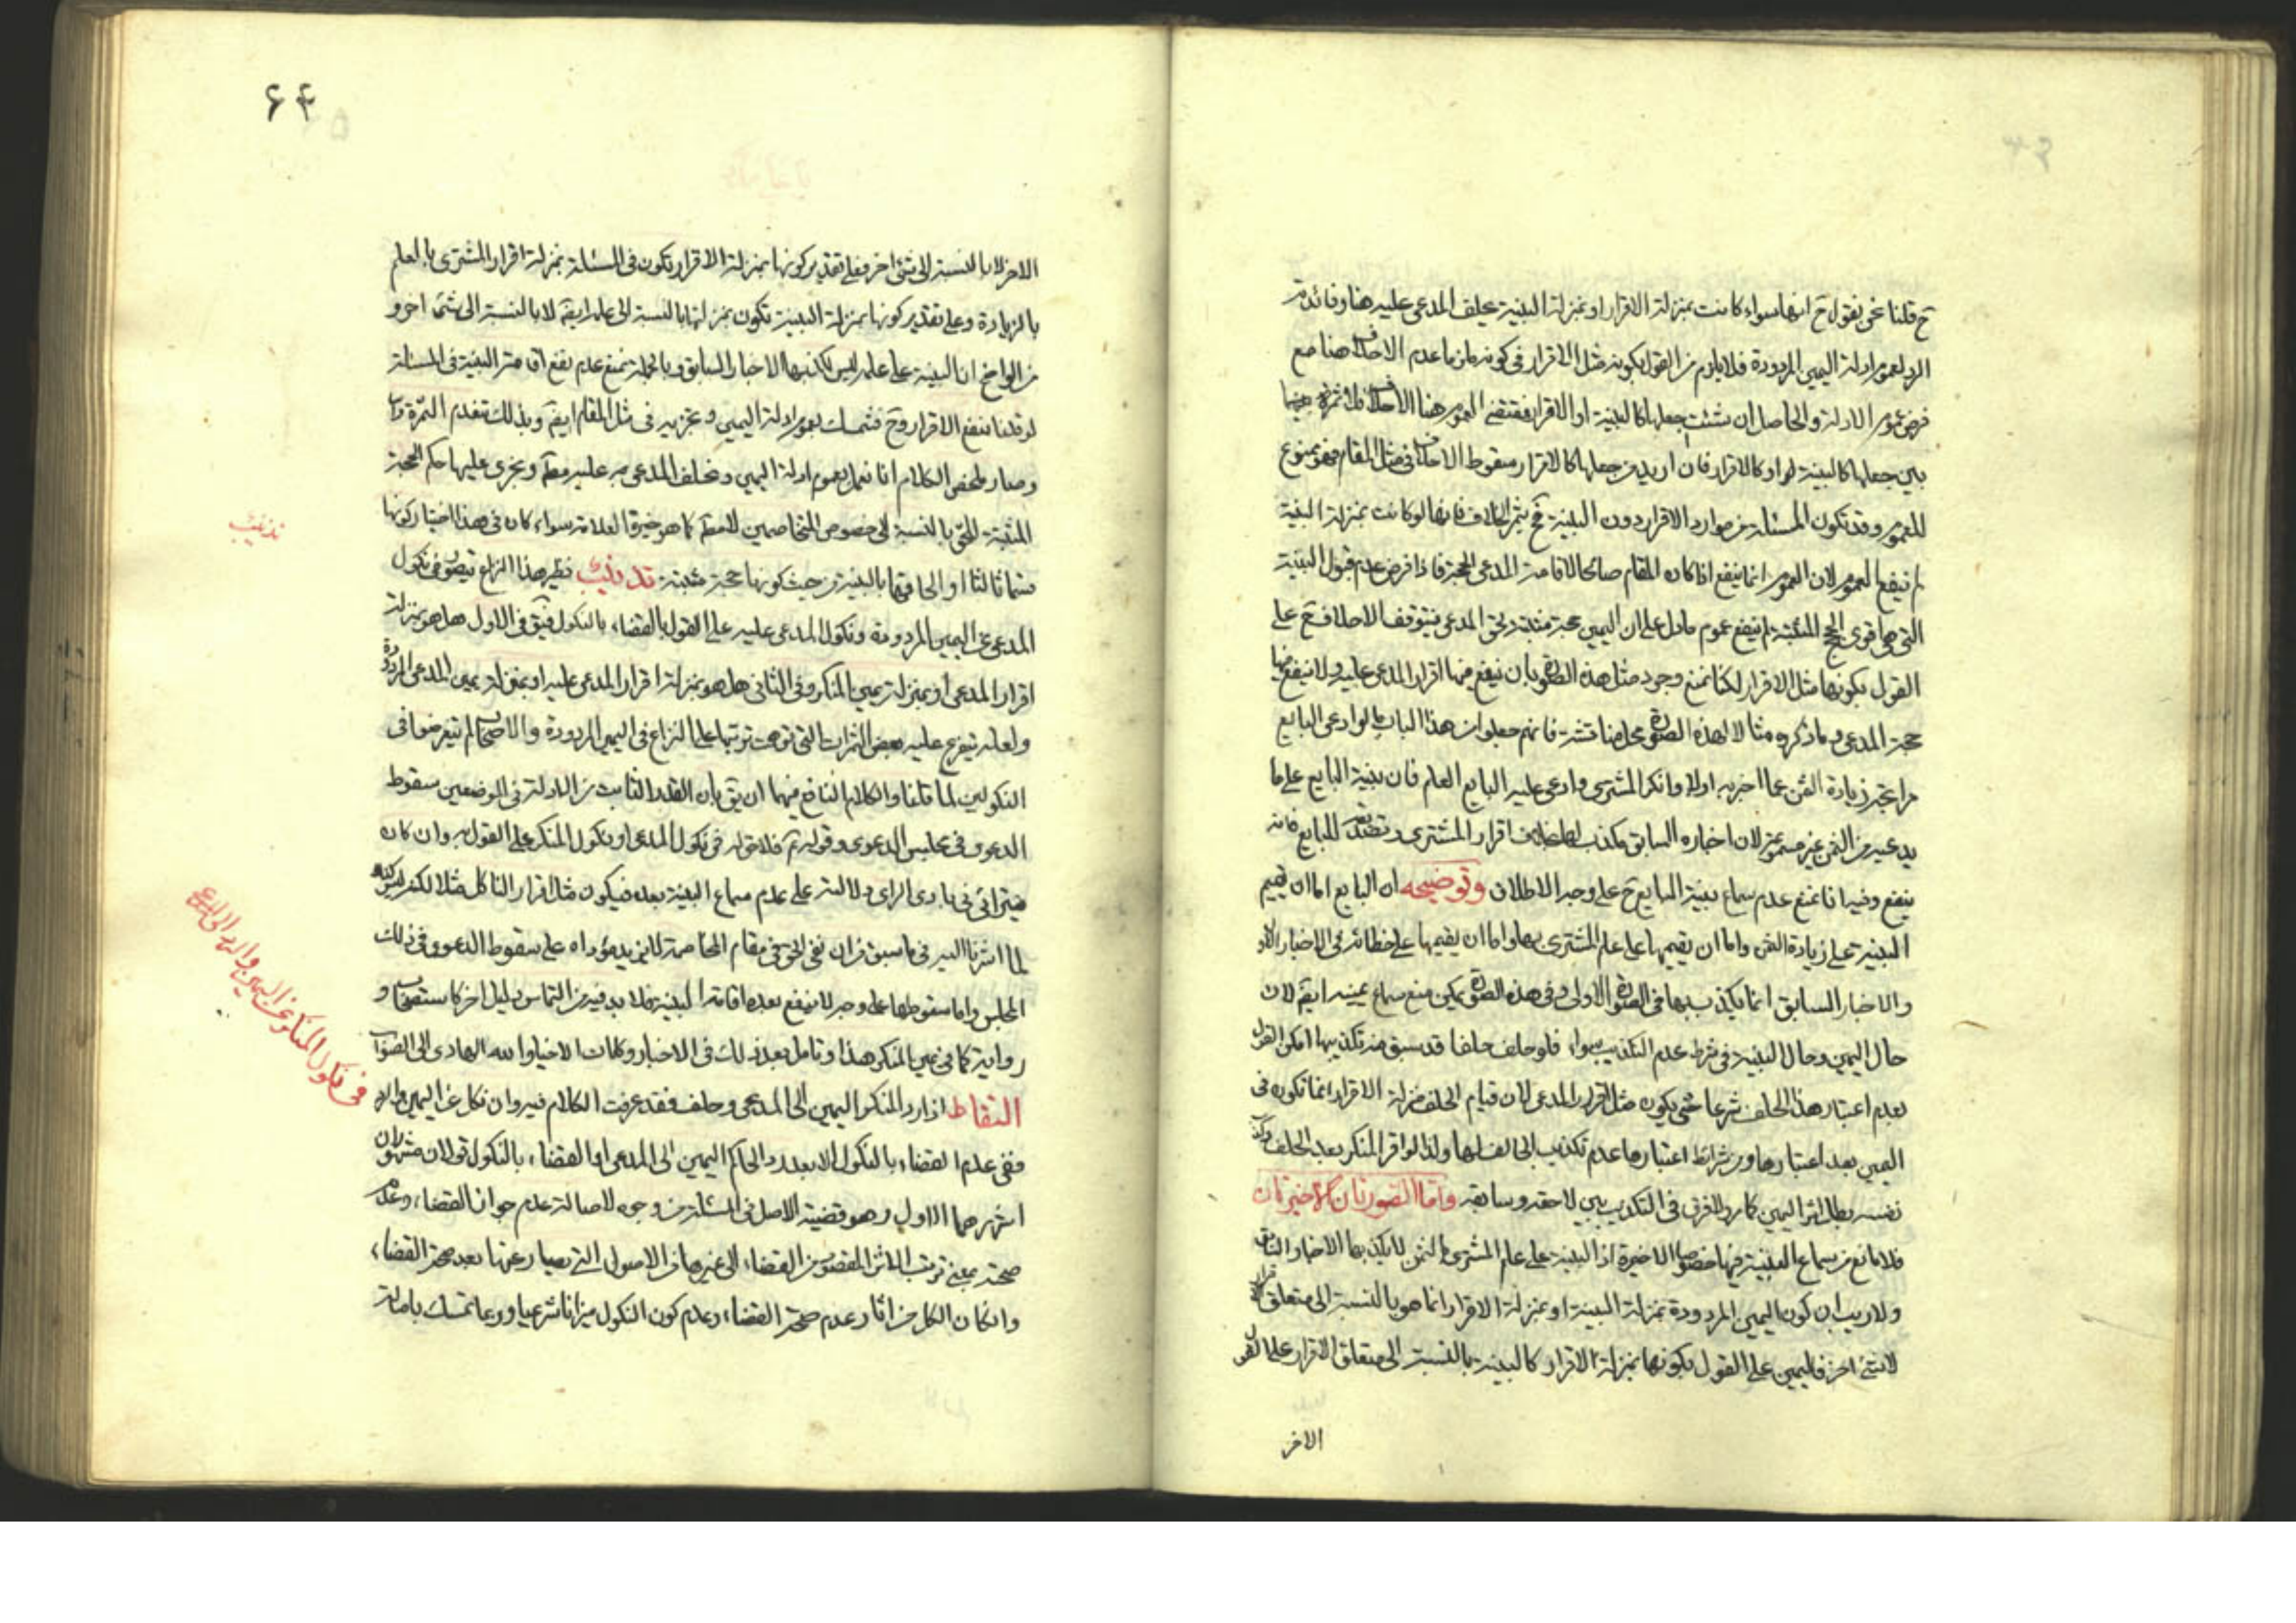 ح قلنا نحن نقول ح انها سواء كانت بمنزلة الاقرار او بمنزلة البينة يحلف المدعى عليه هنا وفائدة
الرد لعموم ادلة اليمين المردودة فلا يلزم من القول بكونه مثل الاقرار فى كونه ملزما عدم الاحلاف هنا مع
فرض عموم الادلة والحاصل ان شئت جعلها كالبينة او الاقرار فمقتضى العموم هنا الاحلاف فلا ثمرة
بين جعلها كالبينة او كالاقرار فان اريد من جعلها كالاقرار سقوط الاحلاف فى مثل المقام فهو ممنوع
للعموم وقد تكون المسئلة من موارد الاقرار دون البينة فح يثمر الخلاف فانها لو كانت بمنزلة البينة
لم ينفع العموم لان العموم انما ينفع اذا كان المقام صالحا لاقامة المدعى الحجة فاذا فرض عدم قبول البينة
التى هى اقوى الحجج المثبتة لم ينفع عموم ما دل على ان اليمين حجة مثبتة لحق المدعى فيتوقف الاحلاف ح على
القول بكونها مثل الاقرار لكنا نمنع وجود مثل هذه الصورة بان ينفع فيها اقرار المدعى عليه ولا ينفع فيها
حجة المدعى وما ذكروه مثالا لهذه الصورة محل مناقشة فانهم جعلوا من هذا الباب ما لو ادعى البايع
مرابحة زيادة الثمن عما اخبر به اولا وانكر المشترى وادعى عليه البايع العلم فان بينة البايع على ما
يدعيه من الثمن غير مسموعة لان اخباره السابق مكذب لها بخلاف اقرار المشترى وتصديقه للبايع فانه
ينفع وفيه انا نمنع عدم سماع بينة البايع ح على وجه الاطلاق وتوضيحه ان البايع اما ان يقيم
البينة على زيادة الثمن واما ان يقيمها على علم المشترى بها واما ان يقيمها على خطائه فى الاخبار الاول
والاخبار السابق انما يكذب بينتها فى الصورة الاولى وفى هذه الصورة يمكن منع سماع يمينه ايضا لان
حال اليمين وحال البينة فى شرط عدم التكذيب سواء فلو حلف حلفا قد سبق منه تكذيبها امكن القول
بعدم اعتبار هذا الحلف شرعا حتى يكون مثل اقرار المدعى لان قيام الحلف منزلة الاقرار انما تكون فى
اليمين بعد اعتبارها ومن شرائط اعتبارها عدم تكذيب الحالف لها ولذا لو اقر المنكر بعد الحلف
نفسه بطل اثر اليمين كما مر ولا فرق فى التكذيب بين لاحقه وسابقه واما الصورتان الاخيرتان
فلا مانع من سماع البينة فيها خصوصا الاخيرة اذ البينة على علم المشترى بالثمن لا يكذبها الاخبار السابق
ولا ريب ان كون اليمين المردودة بمنزلة البينة او بمنزلة الاقرار انما هو بالنسبة الى متعلق
لا شئ اخر فاليمين على القول بكونها بمنزلة الاقرار كالبينة بالنسبة الى متعلق الاقرار على القول
الاخر
۶۴
الاخر لا بالنسبة الى شئ اخر فعلى تقدير كونها بمنزلة الاقرار تكون فى المسئلة بمنزلة اقرار المشترى بالعلم
بالزيادة وعلى تقدير كونها بمنزلة البينة تكون بمنزلتها بالنسبة الى علمه ايضا لا بالنسبة الى شئ اخر و
من الواضح ان البينة على علمه ليس يكذبها الاخبار السابق وبالجملة نمنع عدم نفع اقامة البينة فى المسئلة
لو قلنا بنفع الاقرار وح فنتمسك بعموم ادلة اليمين ونجزيه فى مثل المقام ايضا وبذلك تنعدم الثمرة
وصار ملخص الكلام انا نعمل بعموم ادلة اليمين ونحلف المدعى به عليه مطلقا ونجرى عليها حكم الحجة
المثبتة للحق بالنسبة الى خصوص المتخاصمين لا مطلقا كما هو خيرة العلامة سواء كان فى هذا اختيار كونها
قسما ثالثا او الحاقها بالبينة من حيث كونها حجة مثبتة تذنيب نظير هذا النزاع يتصور فى نكول
المدعى عن اليمين المردودة ونكول المدعى عليه على القول بالقضاء بالنكول فيق فى الاول هل هو بمنزلة
اقرار المدعى او بمنزلة يمين المنكر وفى الثانى هل هو بمنزلة اقرار المدعى عليه او بمنزلة يمين المدعى المردودة
ولعله يتفرع عليه بعض الثمرات التى توهمت ترتبها على النزاع فى اليمين المردودة والاصحاب لم يتعرضوا فى
النكولين لما قلنا والكلام النافع فيهما ان يق بان القدر الثابت من الادلة فى الموضعين سقوط
الدعوى فى مجلس الدعوى وقوله فلا حق له فى نكول المدعى او نكول المنكر على القول به وان كان
يترائى فى بادى الراى دلالته على عدم سماع البينة بعده فيكون مثل اقرار الناكل مثلا لكنه ليس كذلك
لما اشرنا اليه فى ما سبق من ان نفى الحق فى مقام المخاصمة لا يزيد مؤداه على سقوط الدعوى فى ذلك
المجلس واما سقوطها على وجه لا ينفع بعده اقامة البينة فلا بد فيه من التماس دليل اخر كاستصحاب و
رواية كما فى يمين المنكر هذا وتامل بعد ذلك فى الاخبار وكلمات الاخيار والله الهادى الى الصواب
التقاط اذا رد المنكر اليمين الى المدعى وحلف فقد عرفت الكلام فيه وان نكل عن اليمين والرد
ففى عدم القضاء بالنكول الا بعد رد الحاكم اليمين الى المدعى او القضاء بالنكول قولان مشهوران
اشهرهما الاول وهو قضية الاصل فى المسئلة من وجوه لاصالة عدم جواز القضاء وعدم
صحته بمعنى ترتب الاثر المقصود من القضاء الى غيرها من الاصول التى يصار عنها بعد صحة القضاء
وان كان الكل من اثار عدم صحة القضاء وعدم كون النكول ميزانا شرعيا وربما تمسك باصالة
تذنيب
فى نكول المنكر عن اليمين والرد الى المدعى